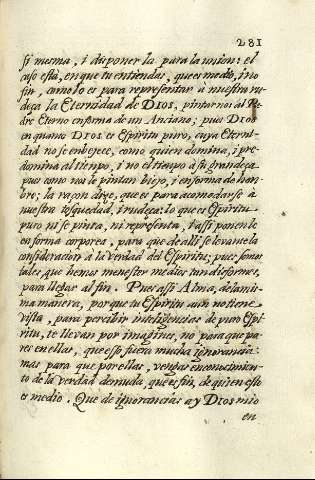 281
si mesma, i disponer la para la union: el
caso està, en que tu entiendas, que es medio, i no
fin, como lo es para representar à nuestra ru-
deça la Eternidad de DIOS, pintarnos al Pa-
dre Eterno en forma de un Anciano; pues DIOS
en quanto DIOS es Espiritu puro, cuya Eterni-
dad no se enbejece, como quien domina, i pre-
domina al tiempo, i no el tiempo à su grandeça
pues como nos le pintan biejo, i en forma de hon-
bre; la raçon dize, que es para acomodarse à
nuestra tosquedad, i rudeça: lo que es Espiritu
puro ni se pinta, ni representa, i assi ponenle
en forma corporea, para que de alli se levante la
consideracion à la verdad del Espiritu; pues somos
tales, que hemos menester medios tan disformes,
para llegar al fin. Pues assi Alma, de la mis-
ma manera, por que tu Espiritu aun no tiene
vista, para percibir inteligencias de puro Espi-
ritu, te llevan por imagines, no para que pa-
res en ellas, que esso fuera mucha ignorancia
mas para que por ellas, vengas en conocimien-
to de la verdad desnuda, que es fin, de quien esto
es medio. Que de ignorancias ay DIOS mio
en